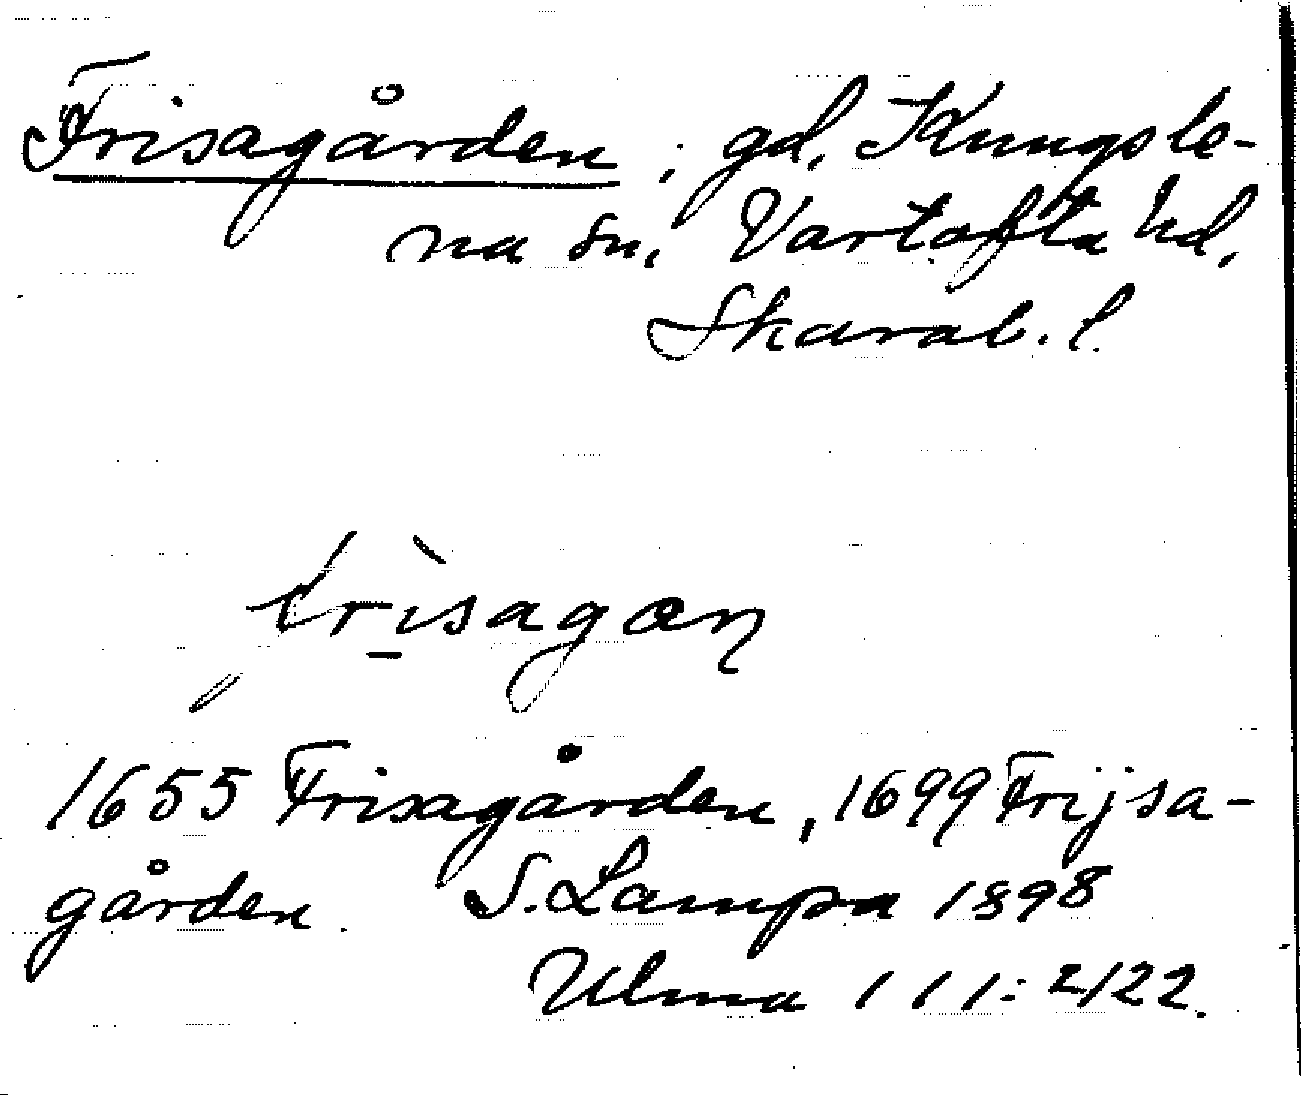 Frisagården ; gd. Kungsle-
na sn. Vartofta hd.
Skarab. l.
frìsagan
1655 Frisagården, 1699 Frijsa-
gården. S. Lampa 1898
Ulma 111: 2/22.